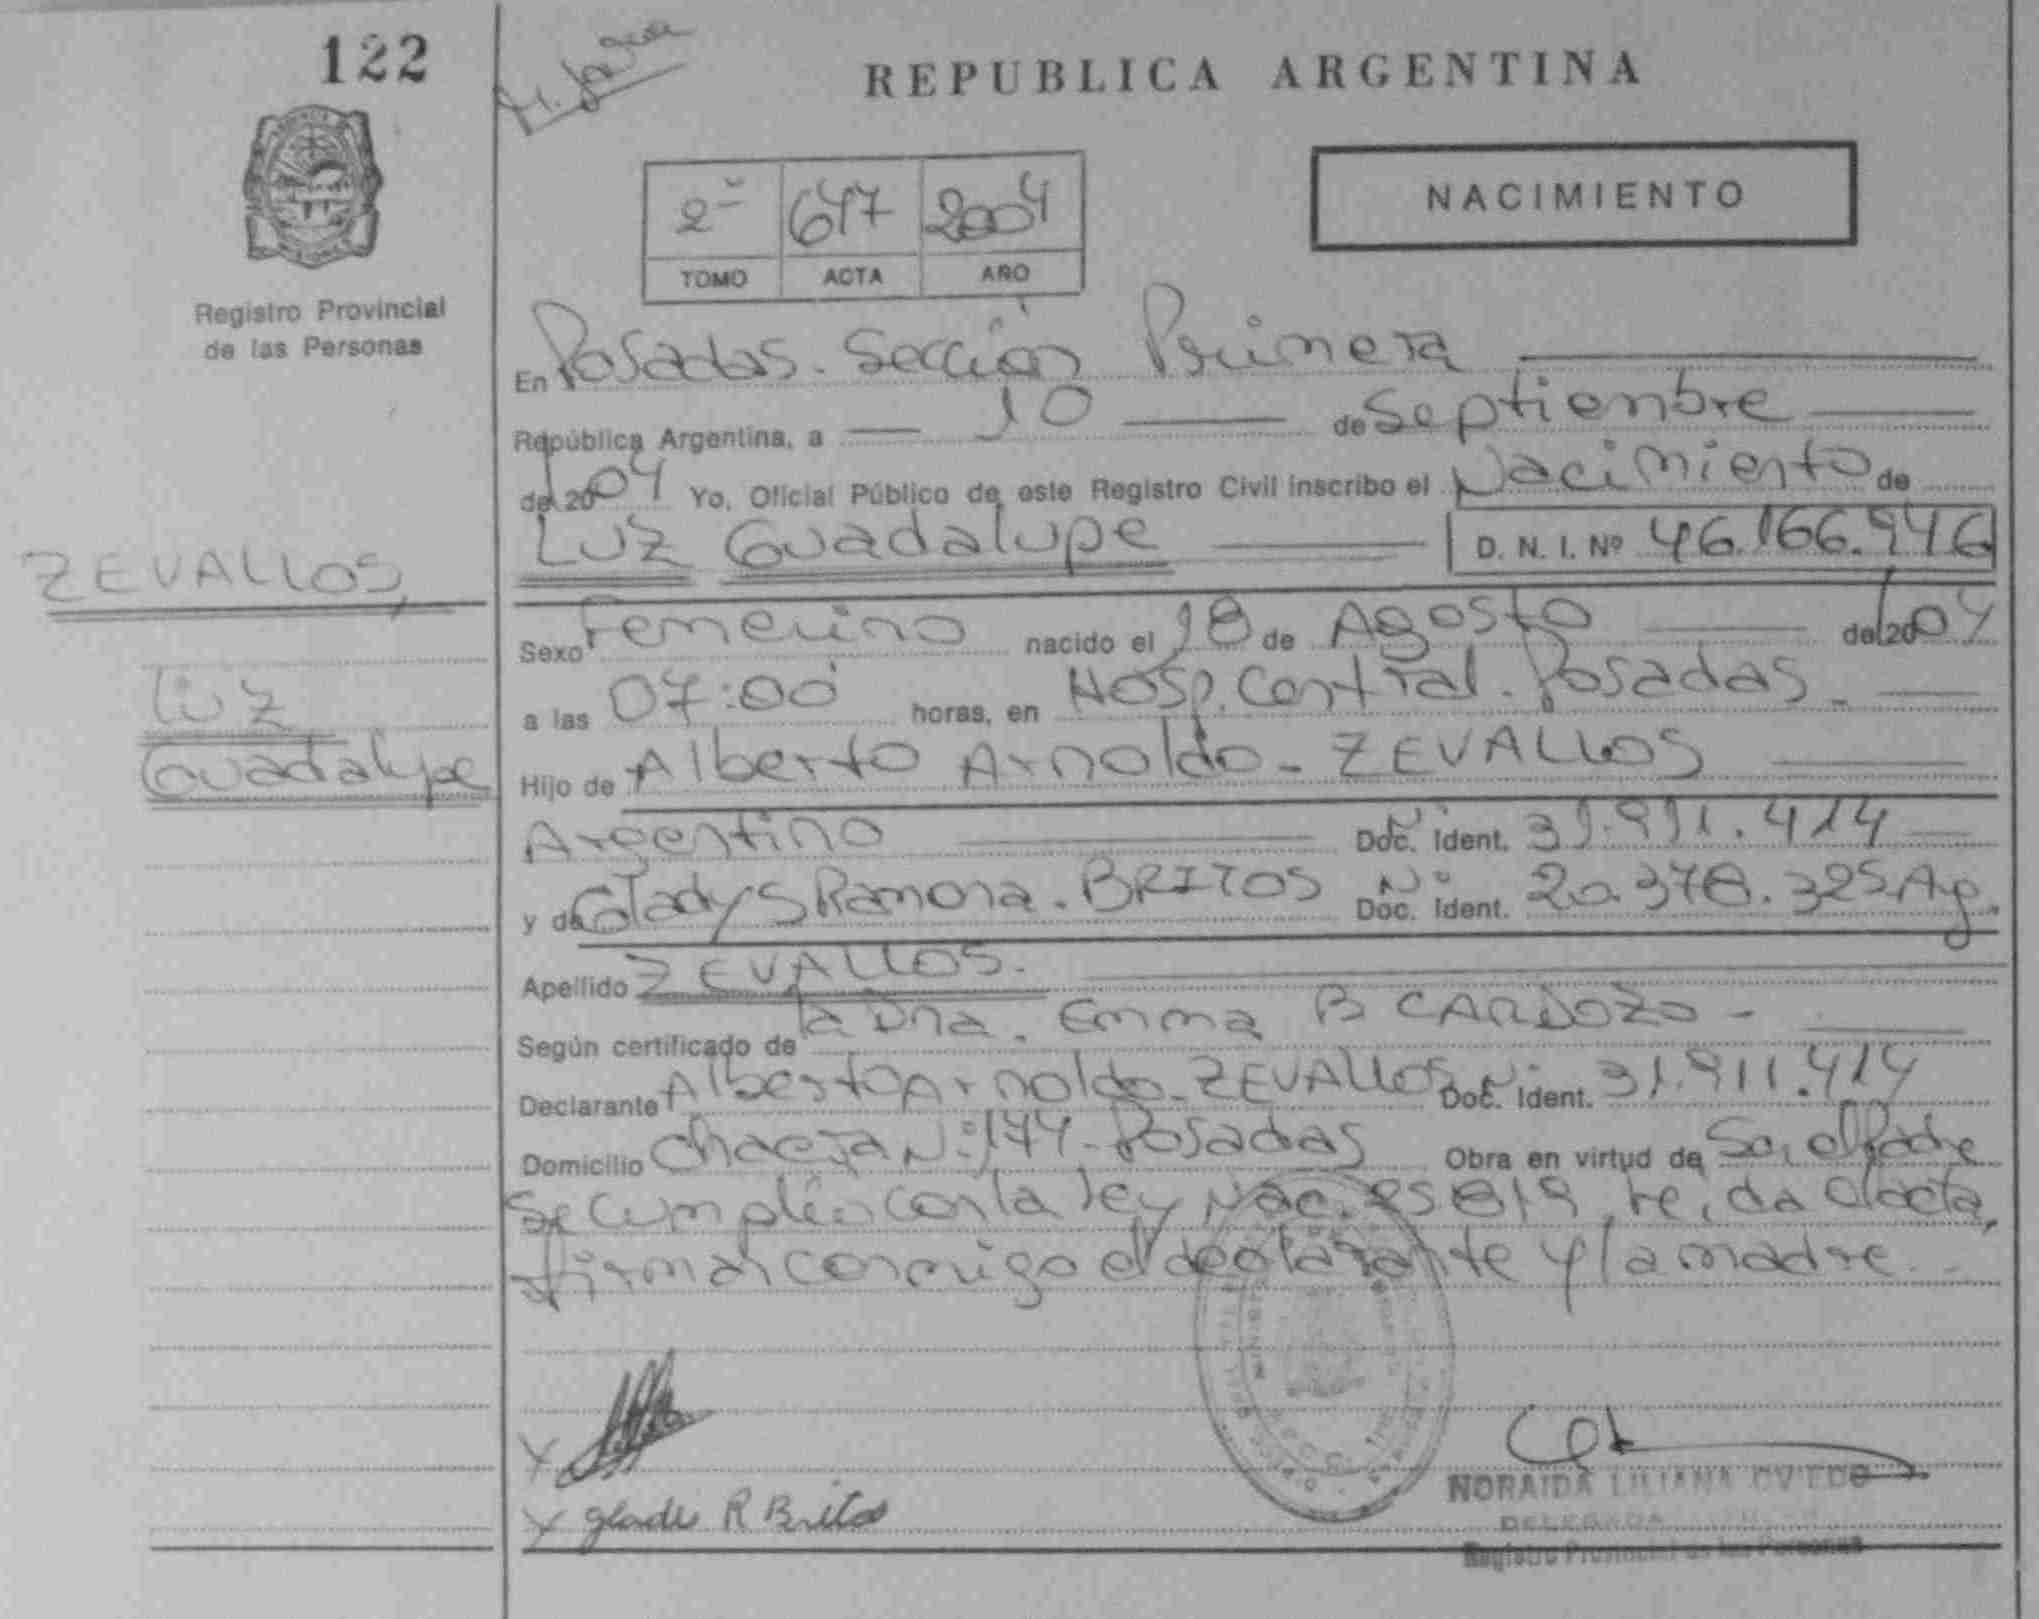 122
REPUBLICA ARGENTINA
NACIMIENTO
2º 647 2004
TOMO ACTA AÑO
Registro Provincial
de las Personas
En Posadas. Sección Primera
República Argentina, a 10 de Septiembre
del 2004 Yo, Oficial Público de este Registro Civil inscribo el Nacimiento de
Luz Guadalupe D. N. I. Nº 46.166.946
ZEVALLOS,
Luz
Guadalupe
Sexo Femenino nacido el 18 de Agosto del 2004
a las 07:00 horas, en Hosp. Central. Posadas.
Hijo de Alberto Arnoldo - ZEVALLOS
Argentino Nº Doc. Ident. 31.911.414
y de Gladys Ramona. BRITOS Nº Doc. Ident. 20.378.325 Ag.
Apellido ZEVALLOS.
Según certificado de la Dra. Emma B CARDOZO -
Declarante Alberto Arnoldo - ZEVALLOS Nº Doc. Ident. 31.911.414
Domicilio Chacra Nº 144 - Posadas Obra en virtud de Ser el Padre
Se cumplió con la ley Nac. 25819, leída el acta,
firman conmigo el declarante y la madre.
X
X glades R Britos
NORAIDA LILIANA OVIEDO
DELEGADA
Registro Provincial de las Personas